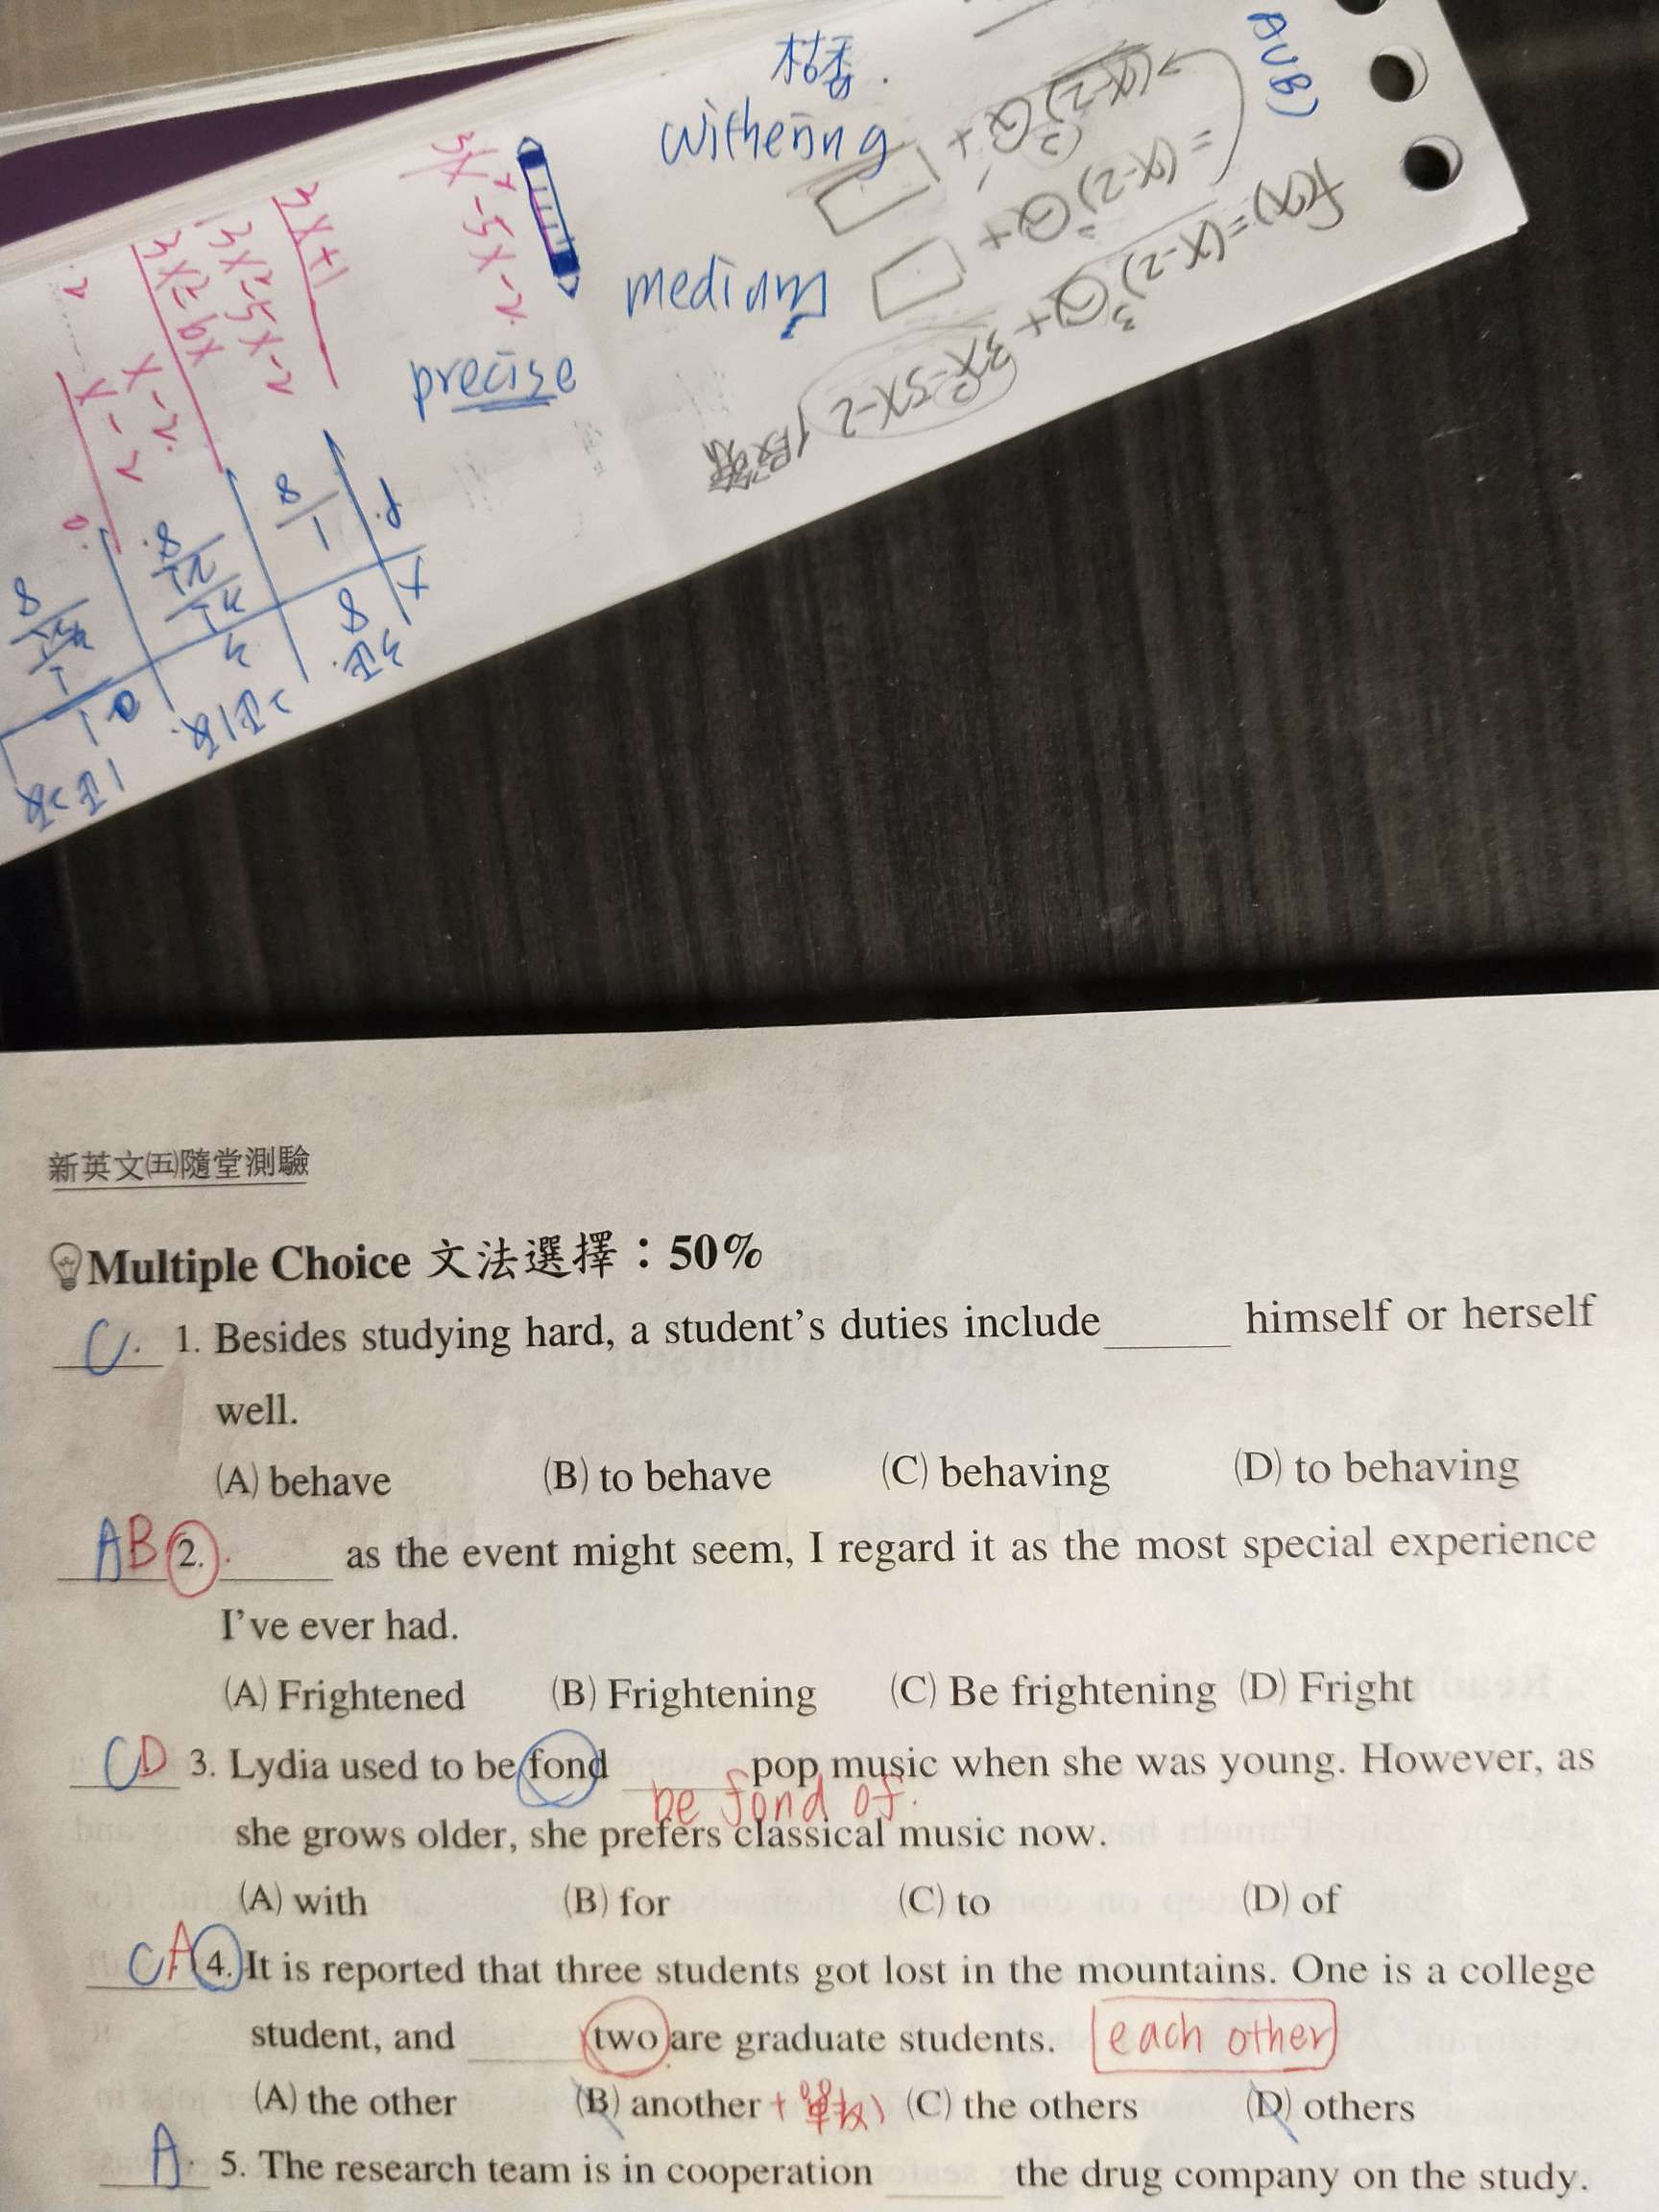 枯萎.
withering
medium
precise
A∪B)
f(x)=(x-2)³Q+3x²-5x-2
=(x-2)²Q+
(x-2)Q+
3x²-5x-2
3x+1
3x²-5x-2
3x²-6x
x-2
x-2
0
x
p
8
3正
1/8
3
2正1反
1正2反
新英文㈤隨堂測驗
Multiple Choice 文法選擇：50%
C. 1. Besides studying hard, a student's duties include______ himself or herself
well.
(A) behave (B) to behave (C) behaving (D) to behaving
AB 2. ______ as the event might seem, I regard it as the most special experience
I've ever had.
(A) Frightened (B) Frightening (C) Be frightening (D) Fright
CD 3. Lydia used to be fond ______ pop music when she was young. However, as
be fond of.
she grows older, she prefers classical music now.
(A) with (B) for (C) to (D) of
CA 4. It is reported that three students got lost in the mountains. One is a college
student, and ______ two are graduate students. each other
(A) the other (B) another + 單數 (C) the others (D) others
A. 5. The research team is in cooperation ______ the drug company on the study.